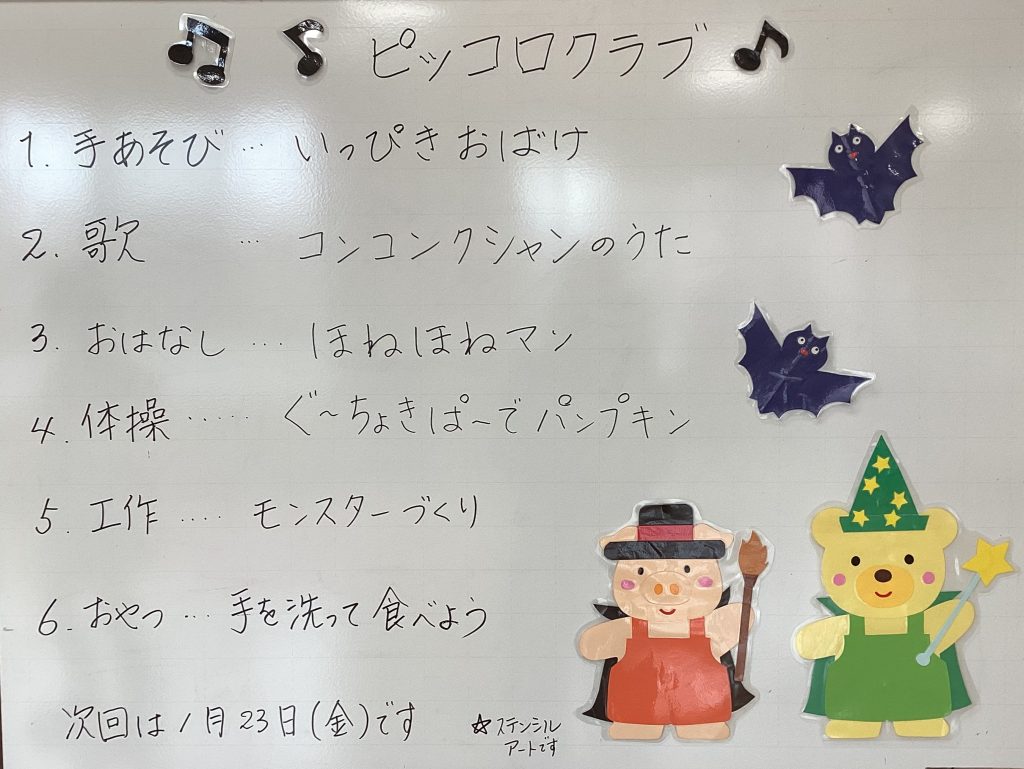 ピッコロクラブ
1. 手あそび … いっぴきおばけ
2. 歌 … コンコンクシャンのうた
3. おはなし … ほねほねマン
4. 体操 ‥‥‥ ぐ〜ちょきぱ〜でパンプキン
5. 工作 ‥‥ モンスターづくり
6. おやつ … 手を洗って食べよう
次回は1月23日(金)です
☆ステンシル
アートです